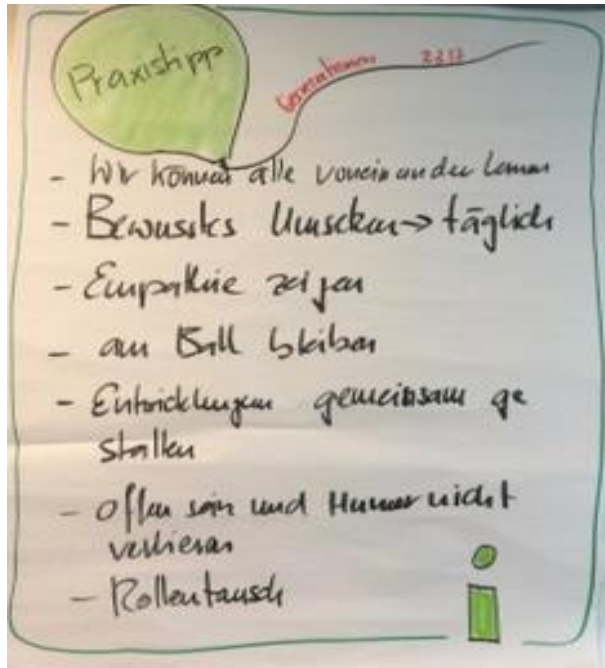 Praxistipp
Generationen 2217
- Wir können alle voneinander lernen
- Bewusstes Umsetzen → täglich
- Empathie zeigen
- am Ball bleiben
- Entwicklungen gemeinsam ge
stalten
- Offen sein und Humor nicht
verlieren
- Rollentausch
i